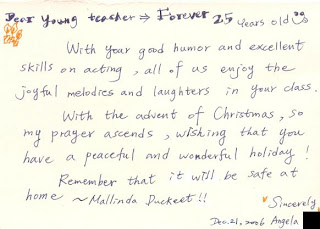 Dear Young teacher ⇒ Forever 25 years old
With your good humor and excellent
skills on acting, all of us enjoy the
joyful melodies and laughters in your class.
With the advent of Christmas, so
my prayer ascends, wishing that you
have a peaceful and wonderful holiday!
Remember that it will be safe at
home ~ Mallinda Duckeet!!
Sincerely
Dec.21, 2006 Angela